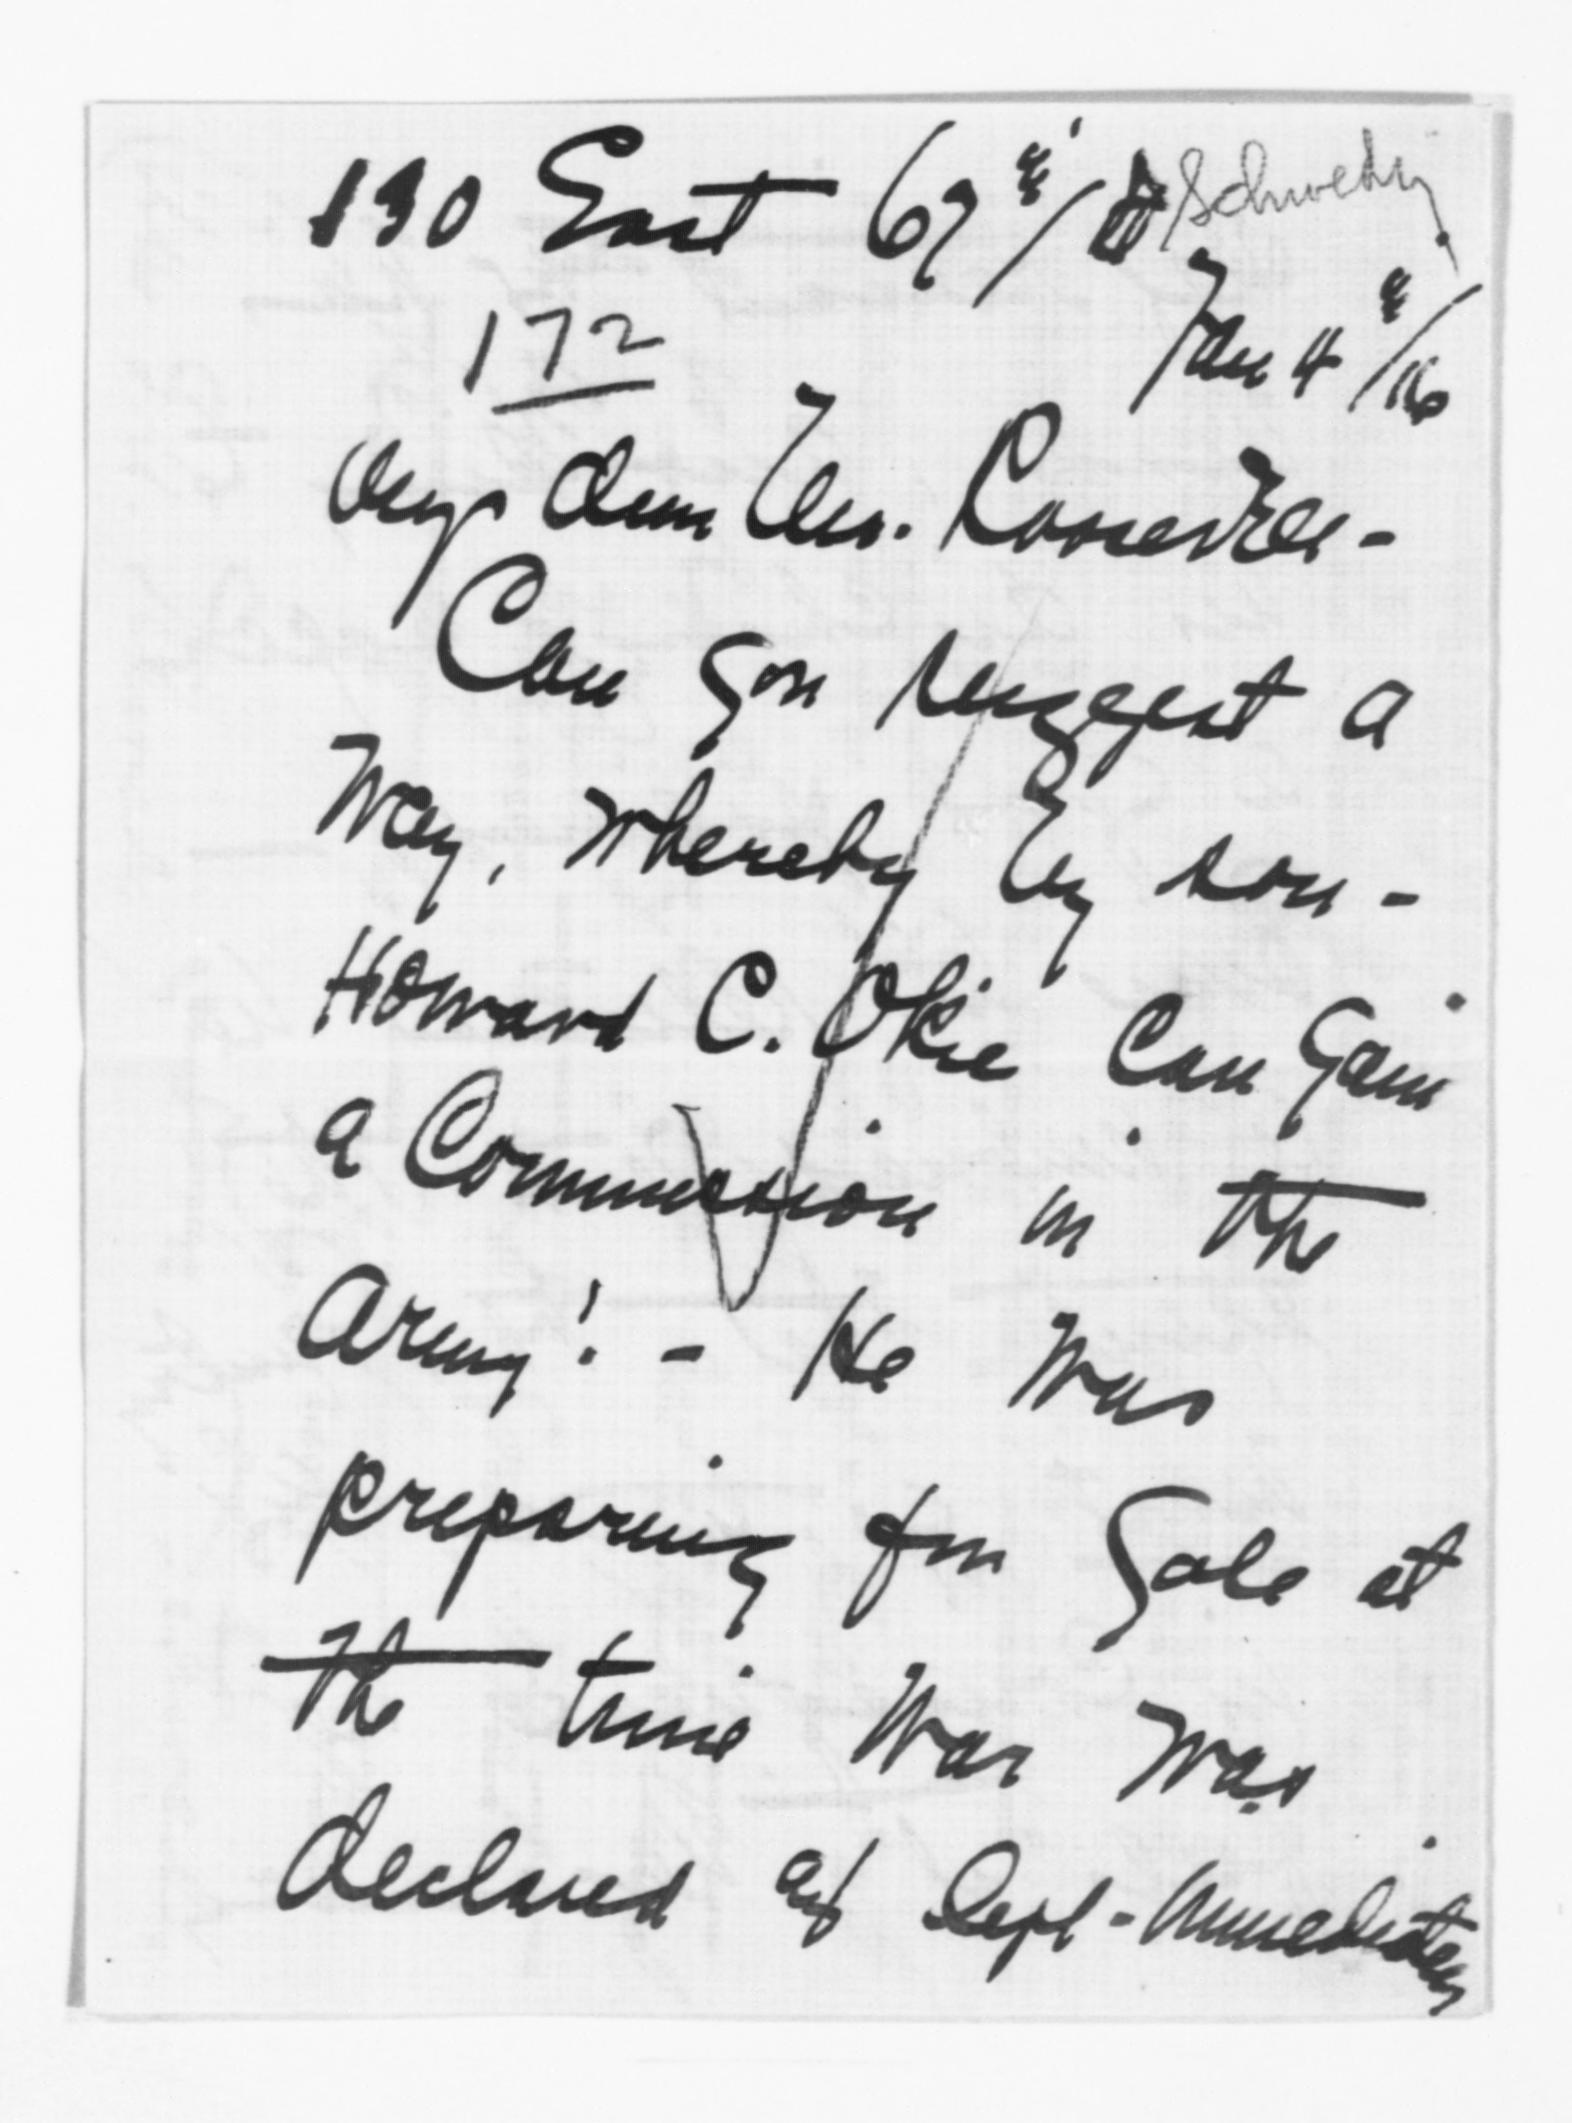 130 East 67th/St Schwehy
Jan 4th/16
172
My dear Mr. Roosevelt -
Can you suggest a
Way, whereby my son -
Howard C. Okie Can gain
a Commission in the
Army! - He was
preparing for Yale at
the time War was
declared and left - immediately